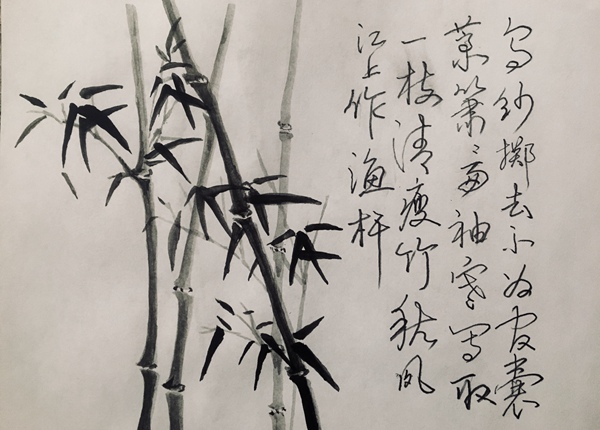 乌纱掷去不为官囊
橐萧〻两袖寒写取
一枝清瘦竹秋风
江上作渔杆